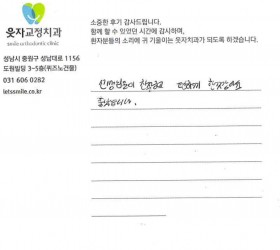 웃자교정치과
smile orthodontic clinic
성남시 중원구 성남대로 1156
도원빌딩 3~5층(위즈노건물)
031 606 0282
letssmile.co.kr
소중한 후기 감사드립니다.
함께 할 수 있었던 시간에 감사하며,
환자분들의 소리에 귀 기울이는 웃자치과가 되도록 하겠습니다.
선생님들이 친절하고
좋았습니다.